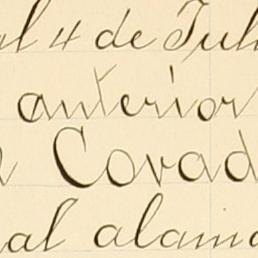 al 4 de Juli
anterior
a Covad
al alama